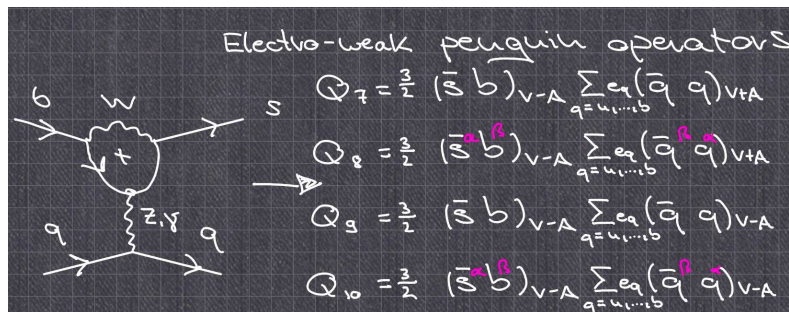 Electro-weak penguin operators
b W s
t
Z,γ
q q
Q₇ = 3/2 (s̄ b)_V-A Σ_{q=u,...,b} e_q (q̄ q)_V+A
Q₈ = 3/2 (s̄^α b^β)_V-A Σ_{q=u,...,b} e_q (q̄^β q^α)_V+A
Q₉ = 3/2 (s̄ b)_V-A Σ_{q=u,...,b} e_q (q̄ q)_V-A
Q₁₀ = 3/2 (s̄^α b^β)_V-A Σ_{q=u,...,b} e_q (q̄^β q^α)_V-A